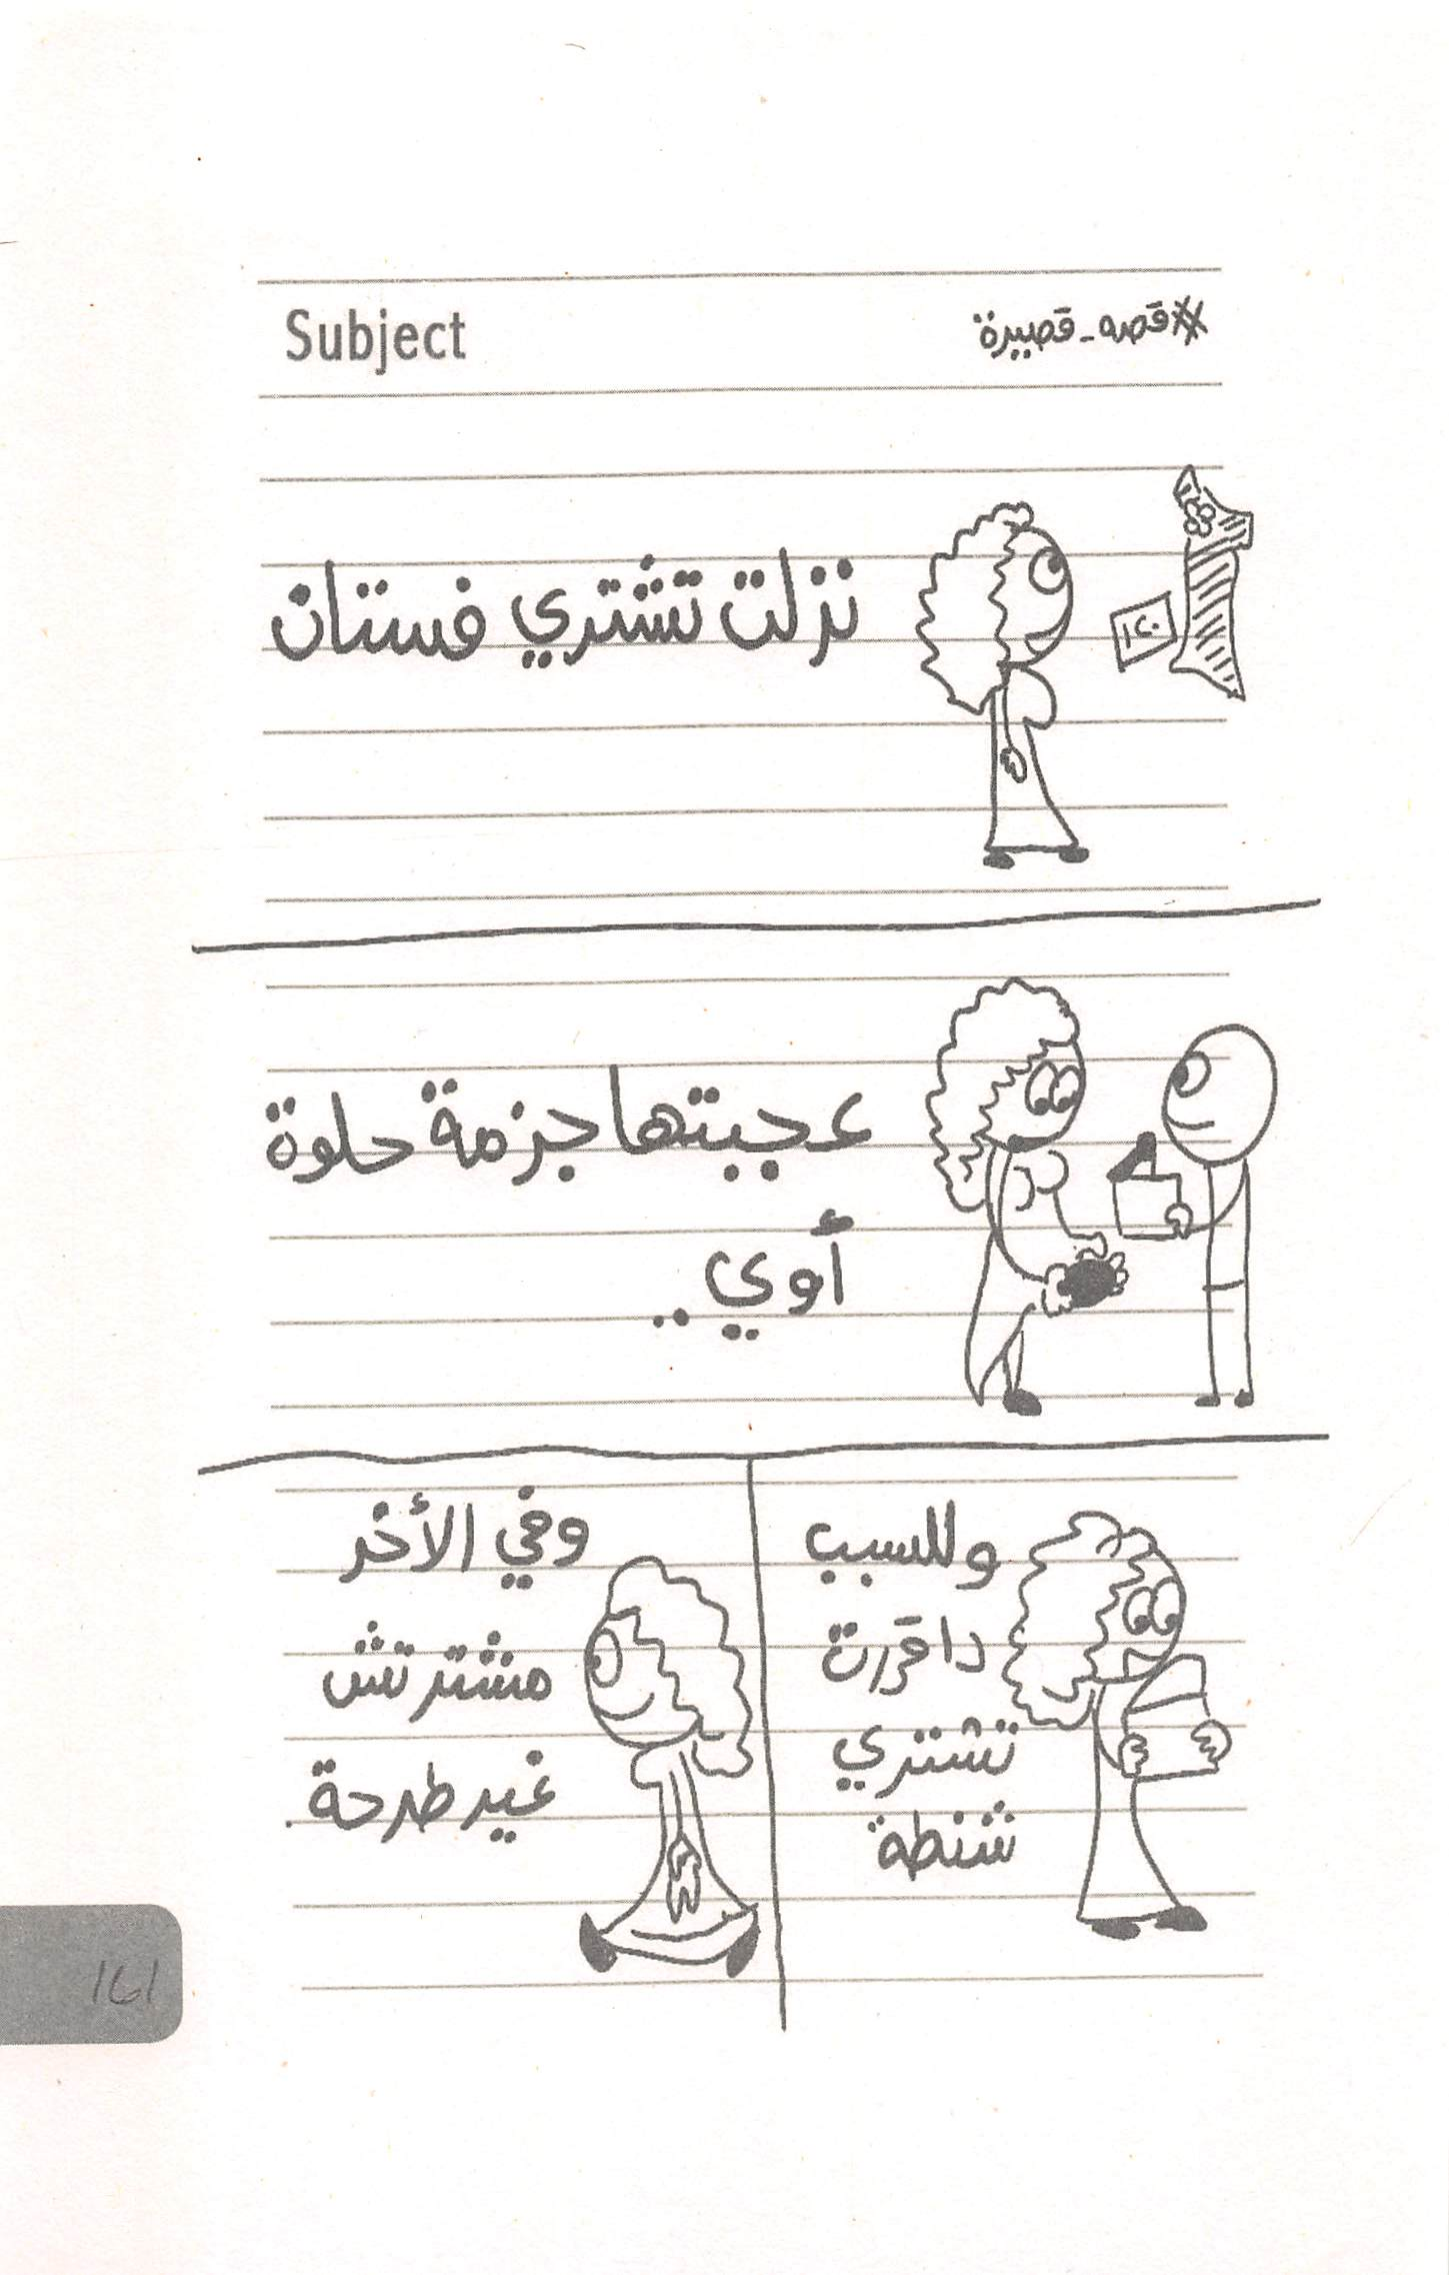 Subject
#قصه_قصيرة
نزلت تشتري فستان
١٢٠
عجبتها جزمة حلوة
أوي..
وللسبب
دا قررت
تشتري
شنطة
وفي الأخر
مشترتش
غير طرحة.
١٢١